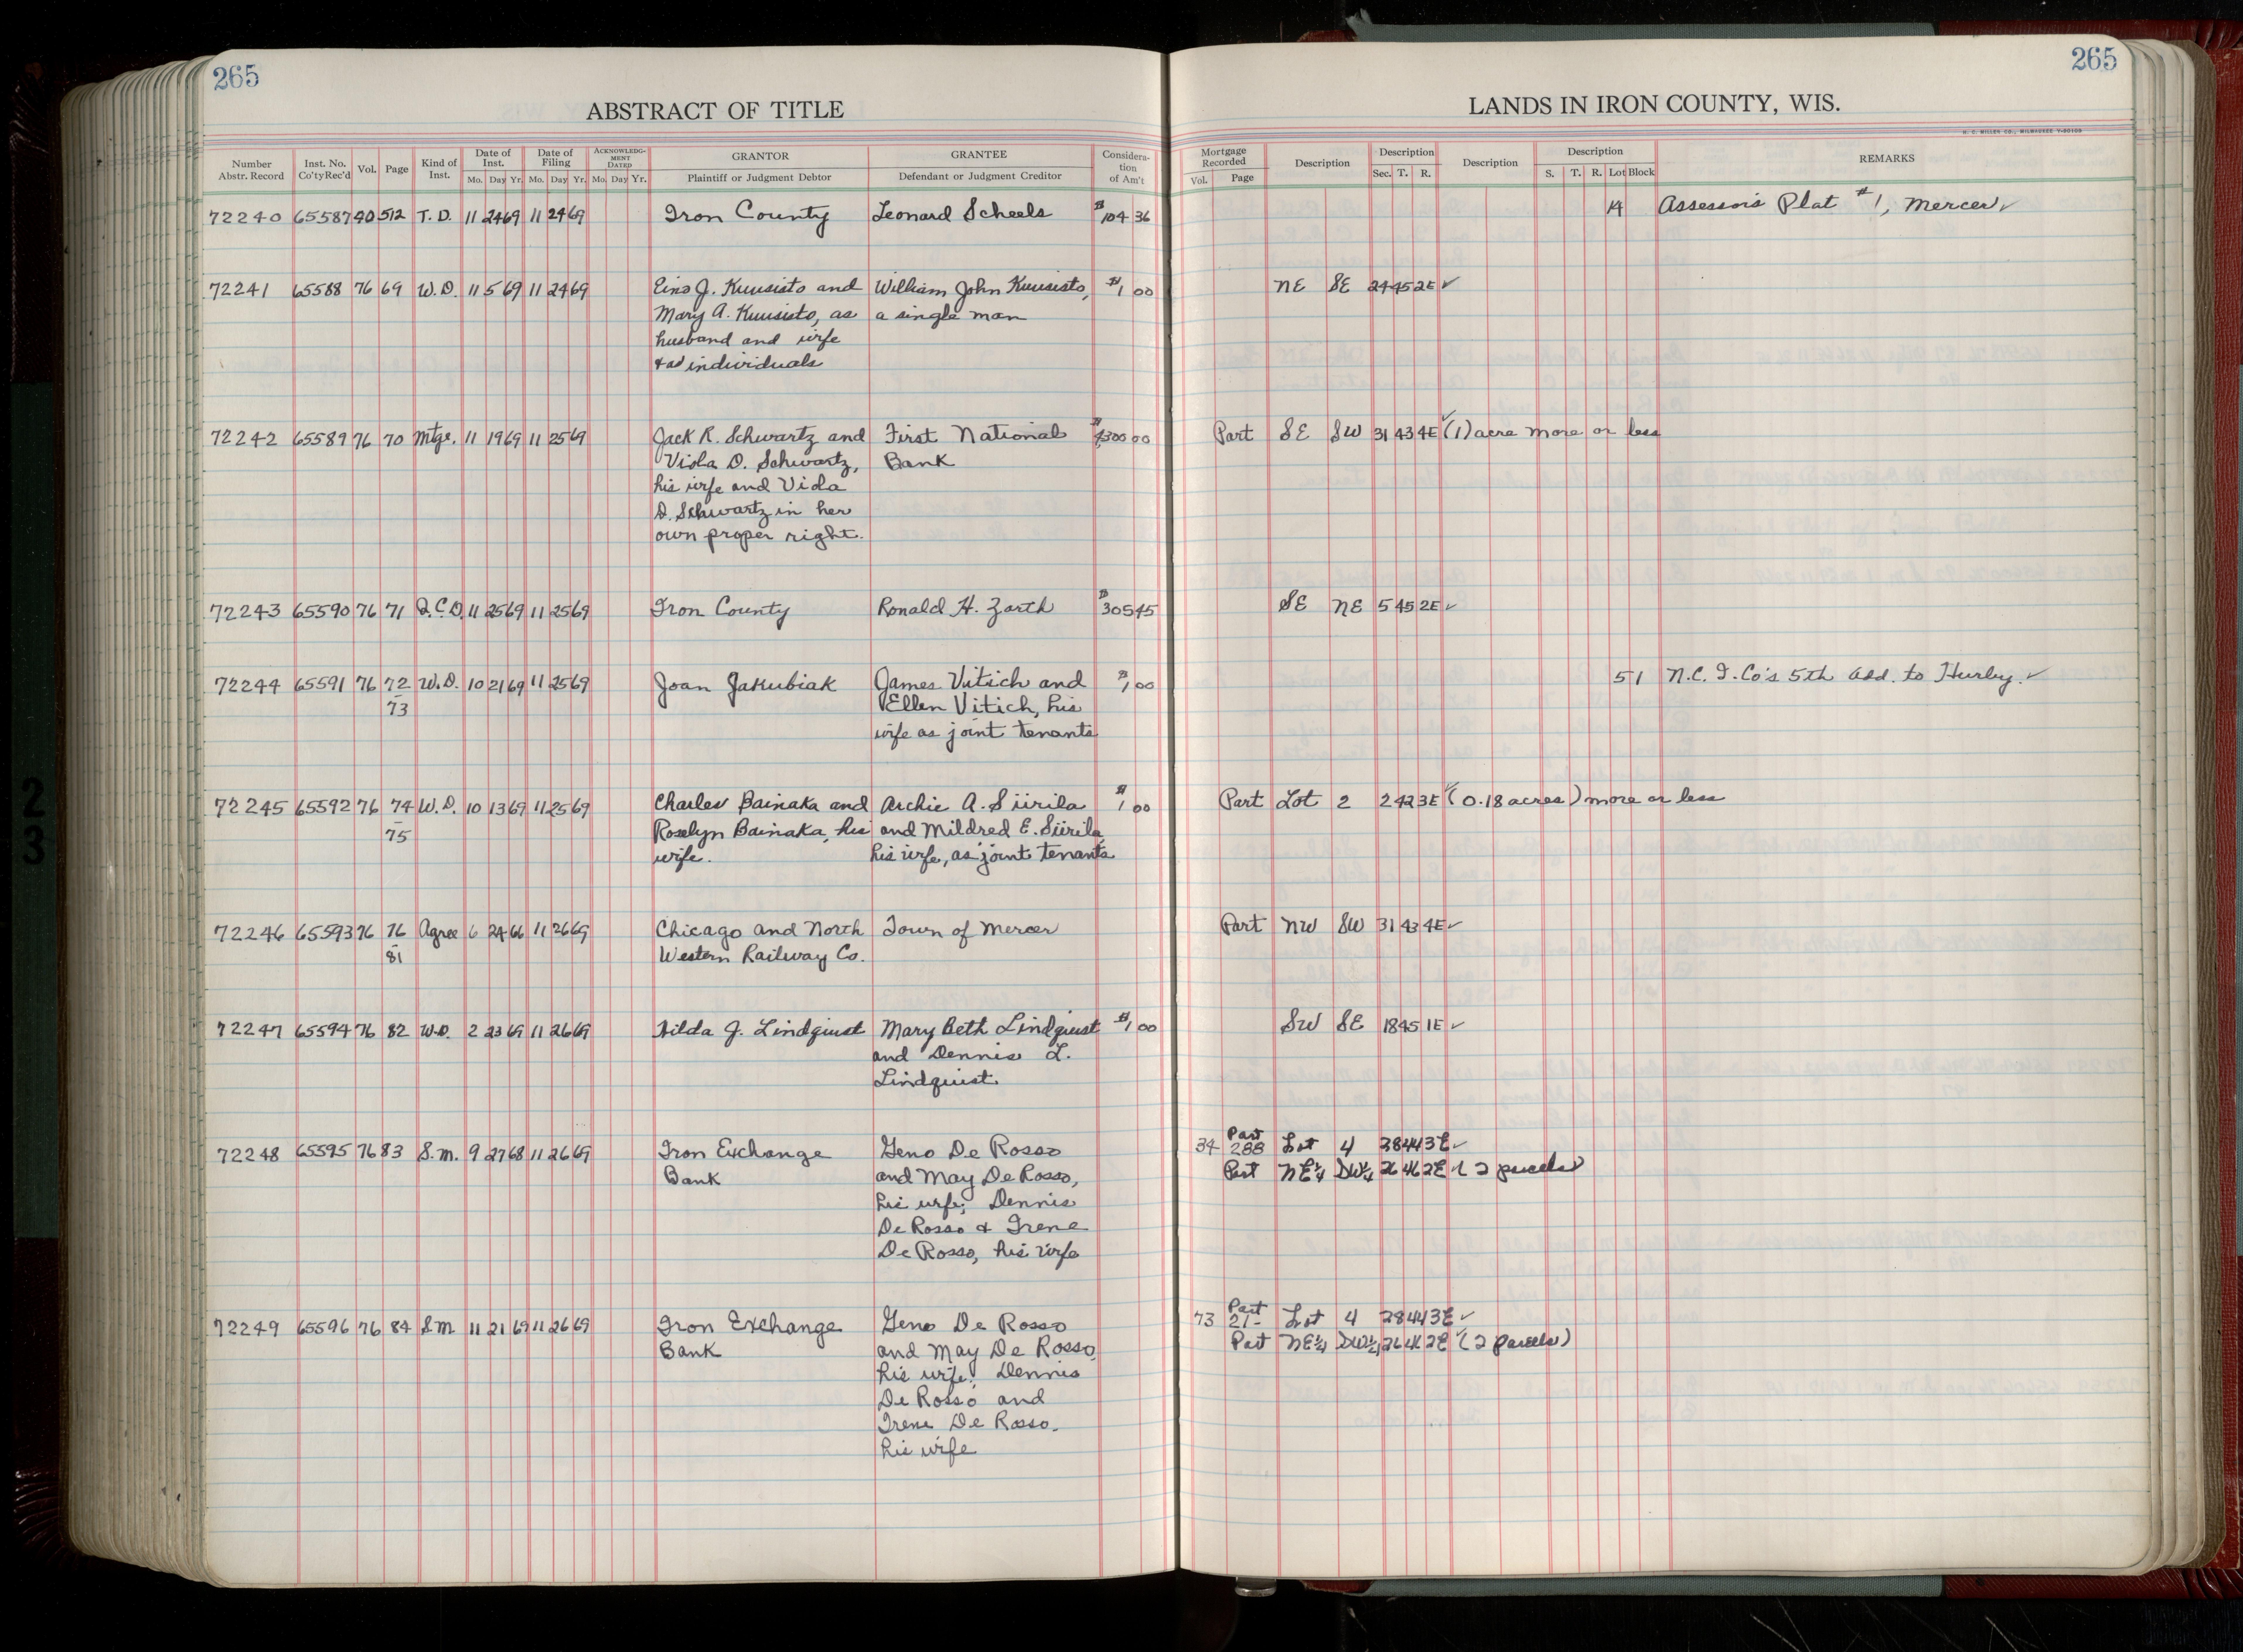 265
265
ABSTRACT OF TITLE
LANDS IN IRON COUNTY, WIS.
H. C. MILLER CO., MILWAUKEE
Number Abstr. Record Inst. No. Co'ty Rec'd Vol. Page Kind of Inst. Date of Inst. Mo. Day Yr. Date of Filing Mo. Day Yr. ACKNOWLEDGMENT DATED Mo. Day Yr. GRANTOR Plaintiff or Judgment Debtor GRANTEE Defendant or Judgment Creditor Consideration of Am't Mortgage Recorded Vol. Page Description Description Sec. T. R. Description Description S. T. R. Lot Block REMARKS
72240 65587 40 512 T. D. 11 24 69 11 24 69 Iron County Leonard Scheels $104 36 14 Assessor's Plat #1, Mercer ✓
72241 65588 76 69 W. D. 11 5 69 11 24 69 Eino J. Kuusisto and William John Kuusisto, $1 00 NE SE 24 45 2E ✓
Mary A. Kuusisto, as a single man
husband and wife
+ as individuals
72242 65589 76 70 Mtge. 11 19 69 11 25 69 Jack R. Schwartz and First National 00 Part SE SW 31 43 4E ✓ (1) acre more or less
Viola D. Schwartz, Bank
his wife and Viola
D. Schwartz in her
own proper right.
72243 65590 76 71 Q.C.D. 11 25 69 11 25 69 Iron County Ronald H. Zarth $305 45 SE NE 5 45 2E ✓
72244 65591 76 72 W.D. 10 21 69 11 25 69 Joan Jakubiak James Vitich and $1 00 51 N.C. I. Co's 5th Add. to Hurley. ✓
-73 Ellen Vitich, his
wife as joint tenants
72245 65592 76 74 W.D. 10 13 69 11 25 69 Charles Bainaka and Archie A. Siirila $1 00 Part Lot 2 2 42 3E ✓ (0.18 acres) more or less
-75 Roselyn Bainaka, his and Mildred E. Siirila,
wife. his wife, as joint tenants
72246 65593 76 76 Agree 6 24 66 11 26 69 Chicago and North Town of Mercer Part NW SW 31 43 4E ✓
-81 Western Railway Co.
72247 65594 76 82 W.D. 2 23 69 11 26 69 Hilda J. Lindquist Mary Beth Lindquist $1 00 SW SE 18 45 1E ✓
and Dennis L.
Lindquist
72248 65595 76 83 S.M. 9 27 68 11 26 69 Iron Exchange Geno De Rosso 34 Part 288 Lot 4 28 44 3E ✓
Bank and May De Rosso, Part NE¼ SW¼ 26 46 2E ✓ (2 parcels)
his wife; Dennis
De Rosso & Irene
De Rosso, his wife
72249 65596 76 84 S.M. 11 21 69 11 26 69 Iron Exchange Geno De Rosso 73 Part 21- Lot 4 28 44 3E ✓
Bank and May De Rosso, Part NE¼ SW¼ 26 46 2E ✓ (2 parcels)
his wife; Dennis
De Rosso and
Irene De Rosso,
his wife
23